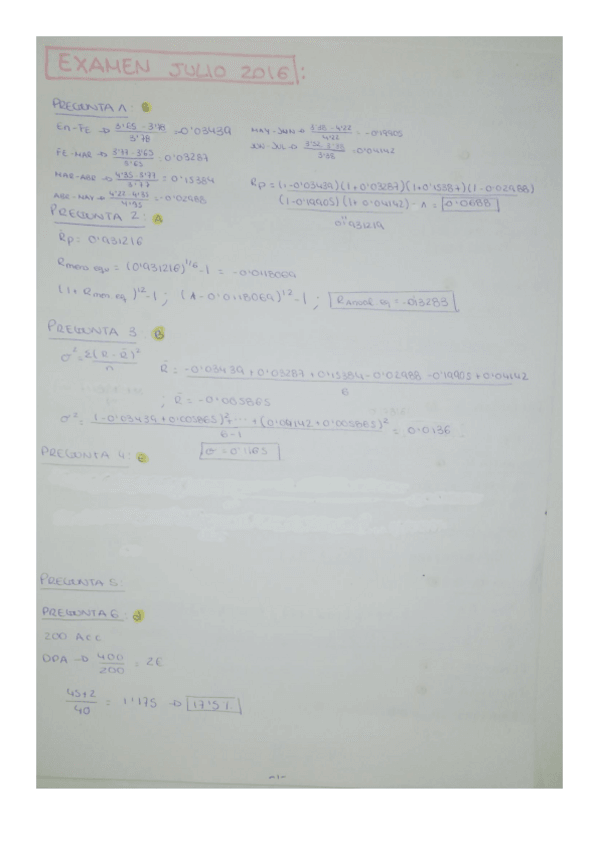 EXAMEN JULIO 2016:
PREGUNTA 1:
EN-FE → (3'65 - 3'78)/3'78 = -0'03439
FE-MAR → (3'77 - 3'65)/3'65 = 0'03287
MAR-ABR → (4'35 - 3'77)/3'77 = 0'15384
ABR-MAY → = -0'02988
MAY-JUN → (3'38 - 4'22)/4'22 = -0'19905
JUN-JUL → (3'52 - 3'38)/3'38 = 0'04142
Rp = (1-0'03439)(1+0'03287)(1+0'1538+)(1-0'02988)
(1-0'19905)(1+0'04142) - 1 = 0'0688
0'931219
PREGUNTA 2: A
Rp: 0'931216
= (0'931216)^1/6 - 1 = -0'0118069
)^12 - 1 ; (1 - 0'0118069)^12 - 1 ; = -0'13283
PREGUNTA 3:
σ² = Σ(R - R̄)²/n
R̄ = (-0'03439 + 0'03287 + 0'15384 - 0'02988 - 0'19905 + 0'04142)/6
; R̄ = -0'005865
σ² = ((-0'03439 + 0'005865)² + ... + (0'04142 + 0'005865)²)/(6-1) = 0'0136
σ = 0'1165
PREGUNTA 4:
PREGUNTA 5:
PREGUNTA 6: d
200 ACC
→ 400/200 = 2€
(45+2)/40 = 1'175 → 17'5%
-1-